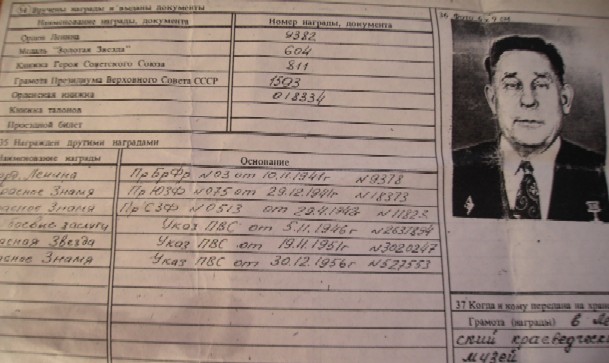 34 Вручены награды и выданы документы
Наименование награды, документа Номер награды, документа
Орден Ленина 9382
Медаль "Золотая Звезда" 604
Книжка Героя Советского Союза 811
Грамота Президиума Верховного Совета СССР 1593
Орденская книжка 018334
Книжка талонов
Проездной билет
35 Награжден другими наградами
Наименование награды Основание
орд. Ленина Пр БрФр №03 от 10.11.1941г №9378
Красное Знамя Пр ЮЗФ №075 от 29.12.1941г №18373
Красное Знамя Пр СЗФ №0513 от №11823
Боевые заслуги Указ ПВС от 5.11.1946г №2631894
Красная Звезда Указ ПВС от 19.11.1951г №3020247
Красное Знамя Указ ПВС от 30.12.1956г №527553
36 Фото 6 9 см
37 Когда и кому передана на хран
Грамота (награды) в
ский краеведческ
музей